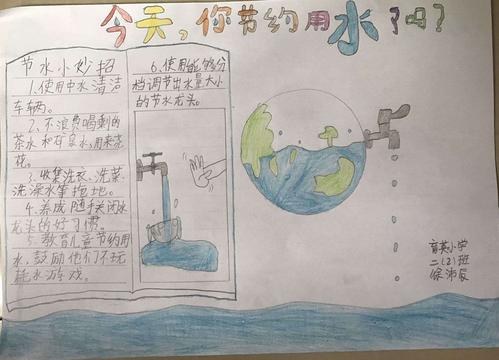 今天,你节约用水了吗?
节水小妙招
1.使用中水清洁
车辆。
2、不浪费喝剩的
茶水和矿泉水,用来浇
花。
3.收集洗衣、洗菜、
洗澡水等拖地。
4.养成随手关闭水
龙头的好习惯。
5、教育儿童节约用
水,鼓励他们不玩
耗水游戏。
6.使用能够分
档调节出水量大小
的节水龙头。
育英小学
二(2)班
徐沛辰